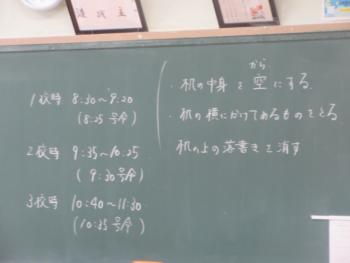 1校時 8:30～9:20
(8:25 号令)
2校時 9:35～10:25
(9:30 号令)
3校時 10:40～11:30
(10:35 号令)
から
・机の中身を空にする.
・机の横にかけてあるものをとる
机の上の落書きを消す